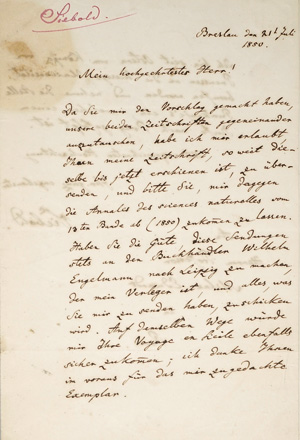 Siebold.
Breslau den 21t Juli
1850.
Mein hochgeehrtester Herr!
Da Sie mir den Vorschlag gemacht haben,
unsere beiden Zeitschriften gegeneinander
auszutauschen, habe ich mir erlaubt
Ihnen meine Zeitschrift, so weit die-
selbe bis jetzt erschienen ist, zu über-
senden, und bitte Sie, mir dagegen
die Annales des sciences naturelles vom
13ten Bande ab (1850) zukommen zu lassen.
Haben Sie die Güte, diese Sendungen
stets an den Buchhändler Wilhelm
Engelmann nach Leipzig zu machen,
der mein Verleger ist und alles was
Sie mir zu senden haben, zuschicken
wird. Auf demselben Wege würde
mir Ihre Voyage en Sicile ebenfalls
sicher zukommen; ich danke Ihnen
im voraus für das mir zugedachte
Exemplar.